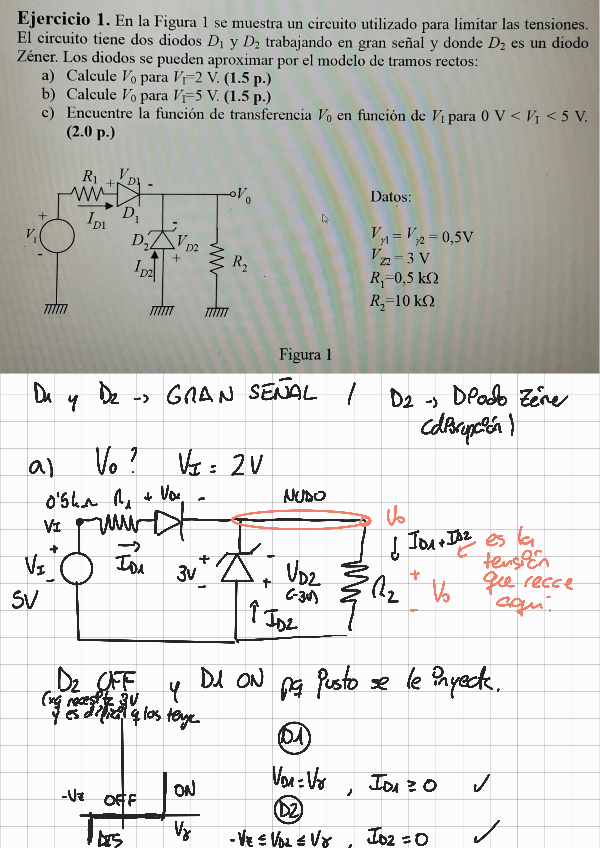 Ejercicio 1. En la Figura 1 se muestra un circuito utilizado para limitar las tensiones.
El circuito tiene dos diodos D1 y D2 trabajando en gran señal y donde D2 es un diodo
Zéner. Los diodos se pueden aproximar por el modelo de tramos rectos:
a) Calcule V0 para VI=2 V. (1.5 p.)
b) Calcule V0 para VI=5 V. (1.5 p.)
c) Encuentre la función de transferencia V0 en función de VI para 0 V < VI < 5 V.
(2.0 p.)
R1 + VD1 -
V0
ID1 D1
+ VI -
D2 - VD2 +
ID2
R2
Datos:
Vγ1 = Vγ2 = 0,5V
VZ2 = 3 V
R1=0,5 kΩ
R2=10 kΩ
Figura 1
D1 y D2 -> GRAN SEÑAL / D2 -> Diodo Zéne
(disrupción)
a) V0? VI = 2V
0'5kΩ R1 + VD1 -
NUDO
V0
VI
ID1
+ VI -
5V
3V + -
- VD2 +
(-3V)
ID2
ID1+ID2
R2
+ V0 -
es la
tensión
que recce
aquí.
D2 OFF y D1 ON pq justo se le inyecta.
(xq necesita 3V
y es difícil q los tenga
D1
VD1 = Vγ , ID1 ≥ 0 ✓
D2
-VZ ≤ VD2 ≤ Vγ , ID2 = 0 ✓
-VZ OFF ON
DIS Vγ